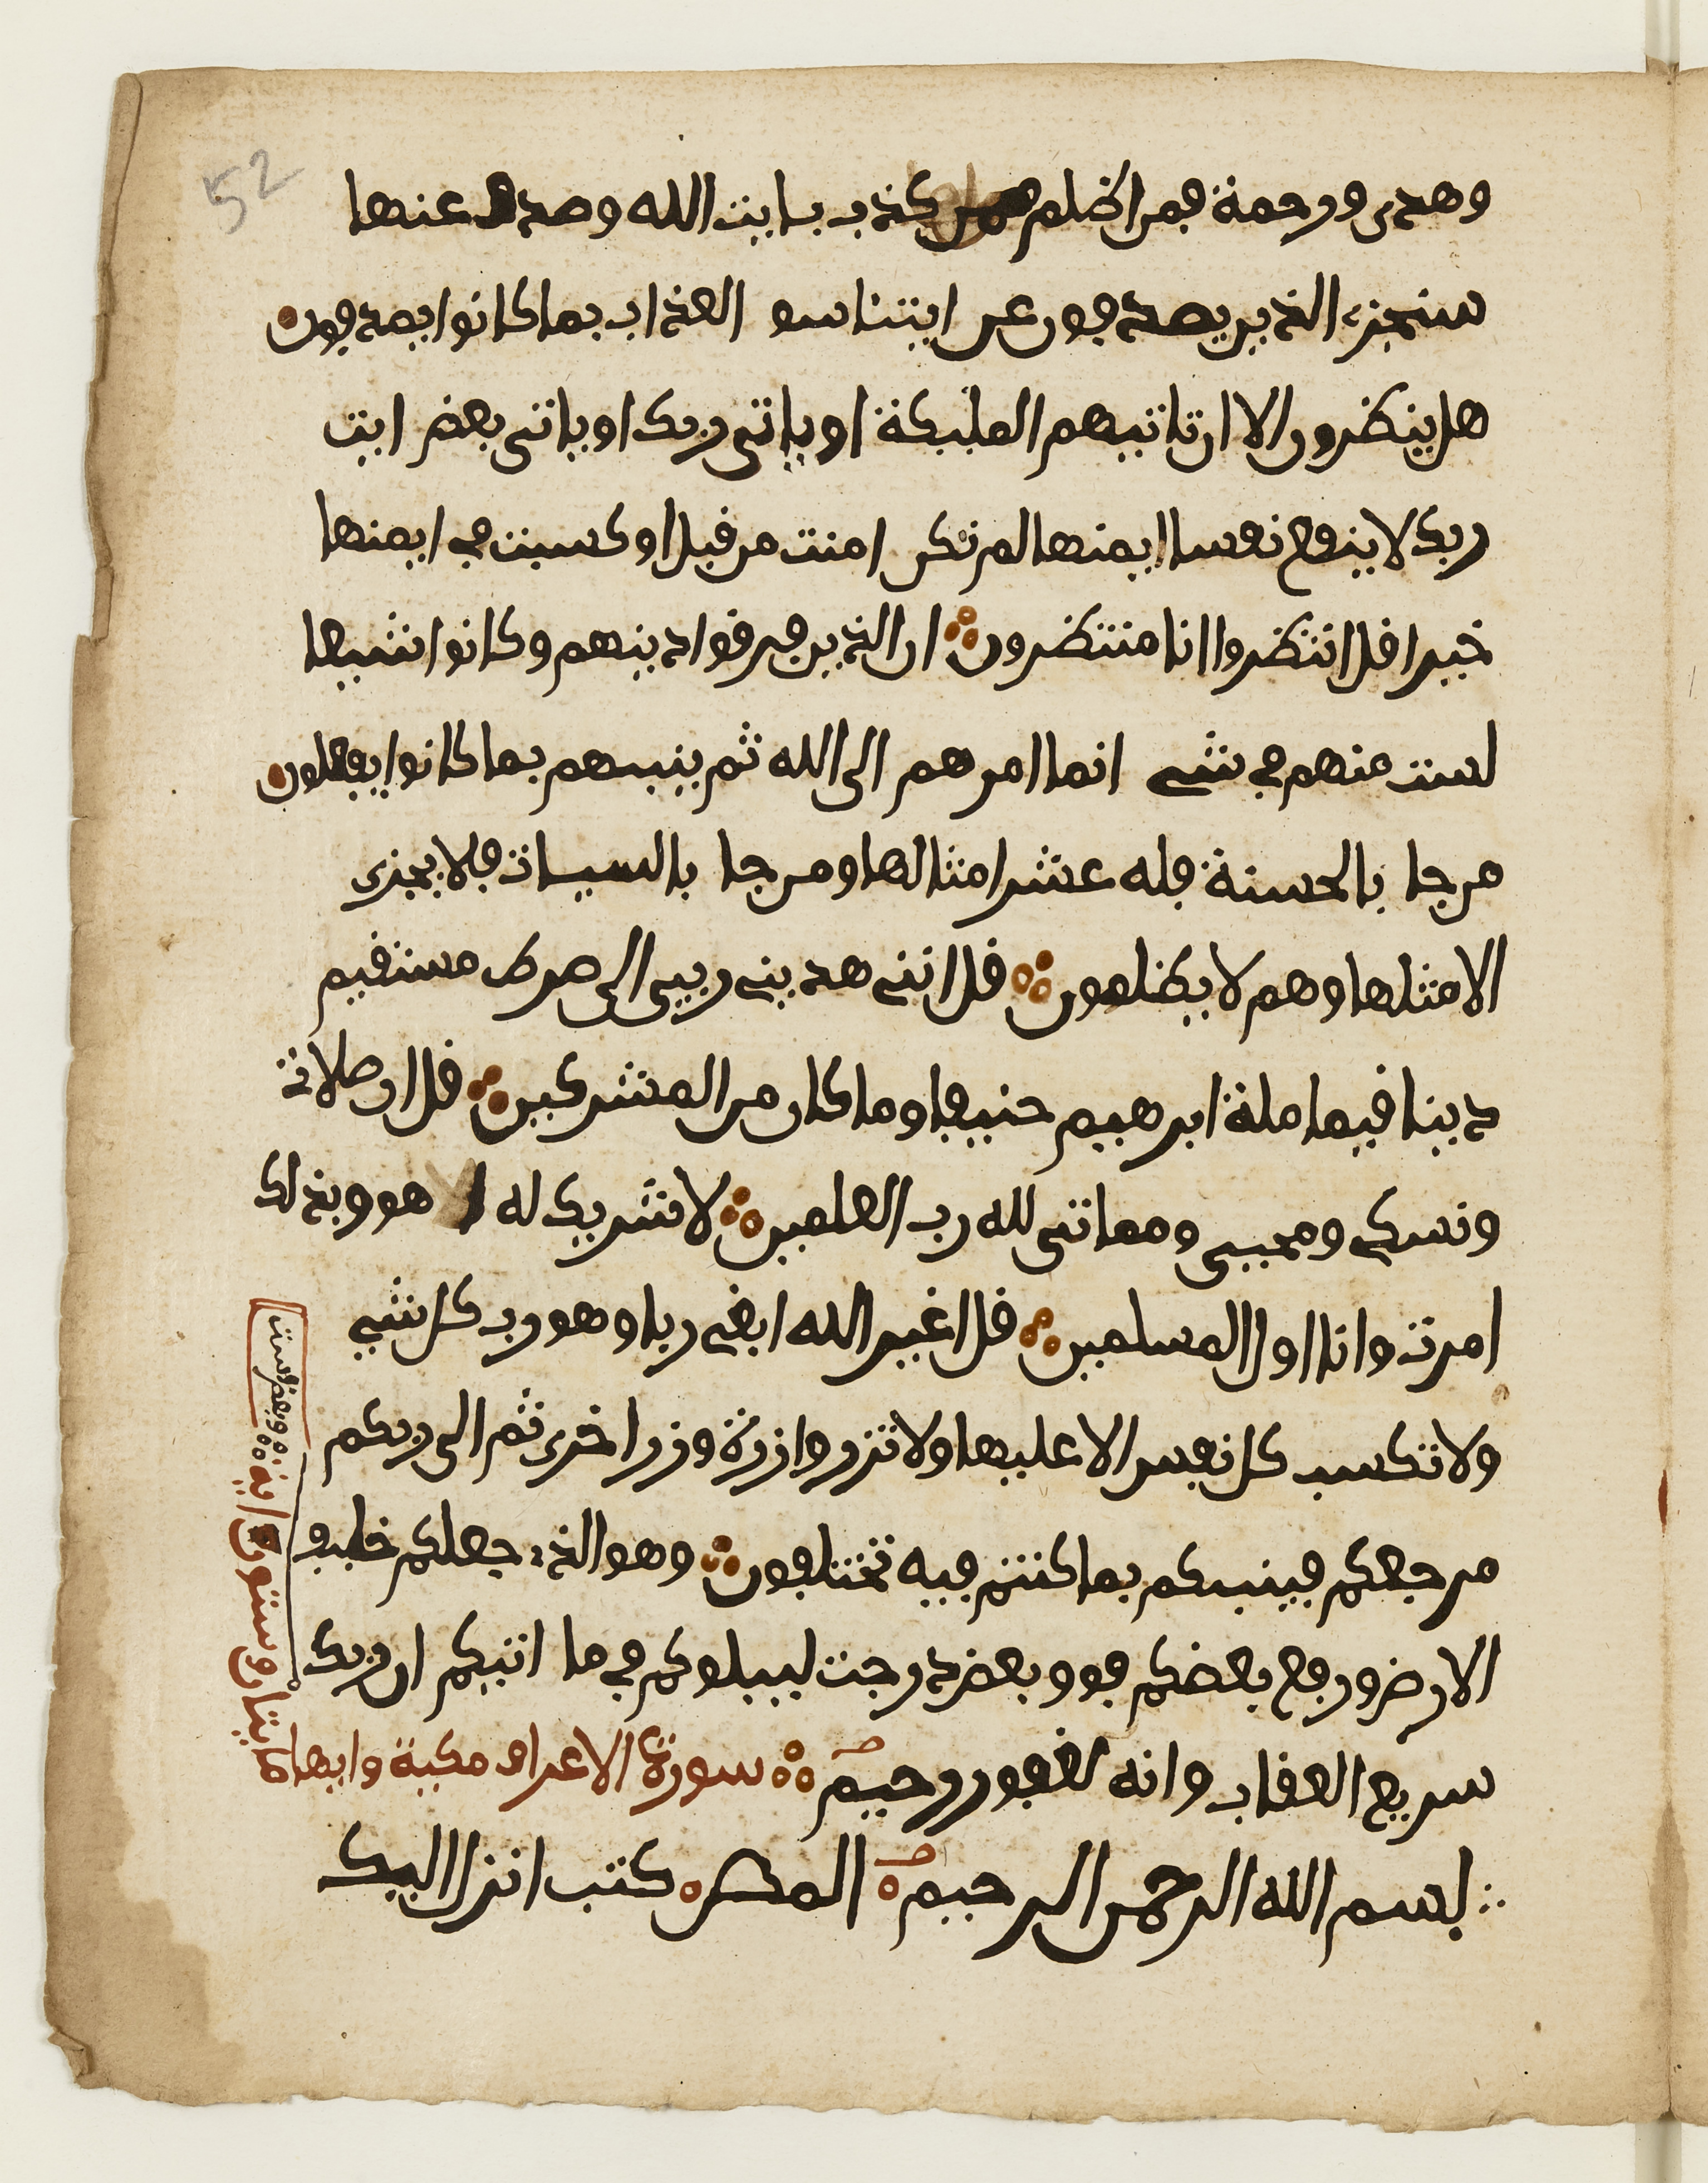 52
وهدى ورحمة فمن اظلم ممن كذب بايت الله وصدف عنها
سنجزے الذين يصدفون عن ايتنا سو العذاب بما كانوا يصدفون
هل ينظرون الا ان تاتيهم المليكة او ياتى ربك او ياتى بعض ايت
ربك لا ينفع نفسا ايمنها لم تكن امنت من قبل او كسبت فے ايمنها
خيرا قل انتظروا انا منتظرون ان الذين فرقوا دينهم وكانوا شيعا
لست منهم فے شے انما امرهم الى الله ثم ينبيهم بما كانوا يفعلون
من جا بالحسنة فله عشر امثالها ومن جا بالسيات فلا يجزى
الا مثلها وهم لا يظلمون قل اننے هدينے ربيى الى صرط مستقيم
دينا قيما ملة ابرهيم حنيفا وما كان من المشركين قل ان صلاتے
ونسكے ومحيىى ومماتى لله رب العلمين لا شريك له هو وبذلك
امرت وانا اول المسلمين قل اغير الله ابغے ربا وهو رب كل شے
ولا تكسب كل نفس الا عليها ولا تزر وازرة وزر اخرى ثم الى ربكم
مرجعكم فينبيكم بما كنتم فيه تختلفون وهو الذے جعلكم خليف
الارض ورفع بعضكم فوق بعض درجت ليبلوكم فے ما اتيكم ان ربك
سريع العقاب وانه لغفور رحيم سورة الاعراف مكية وايها ما
يتان وستون اية
وبعض وست
بسم الله الرحمن الرحيم المص كتب انزل اليك